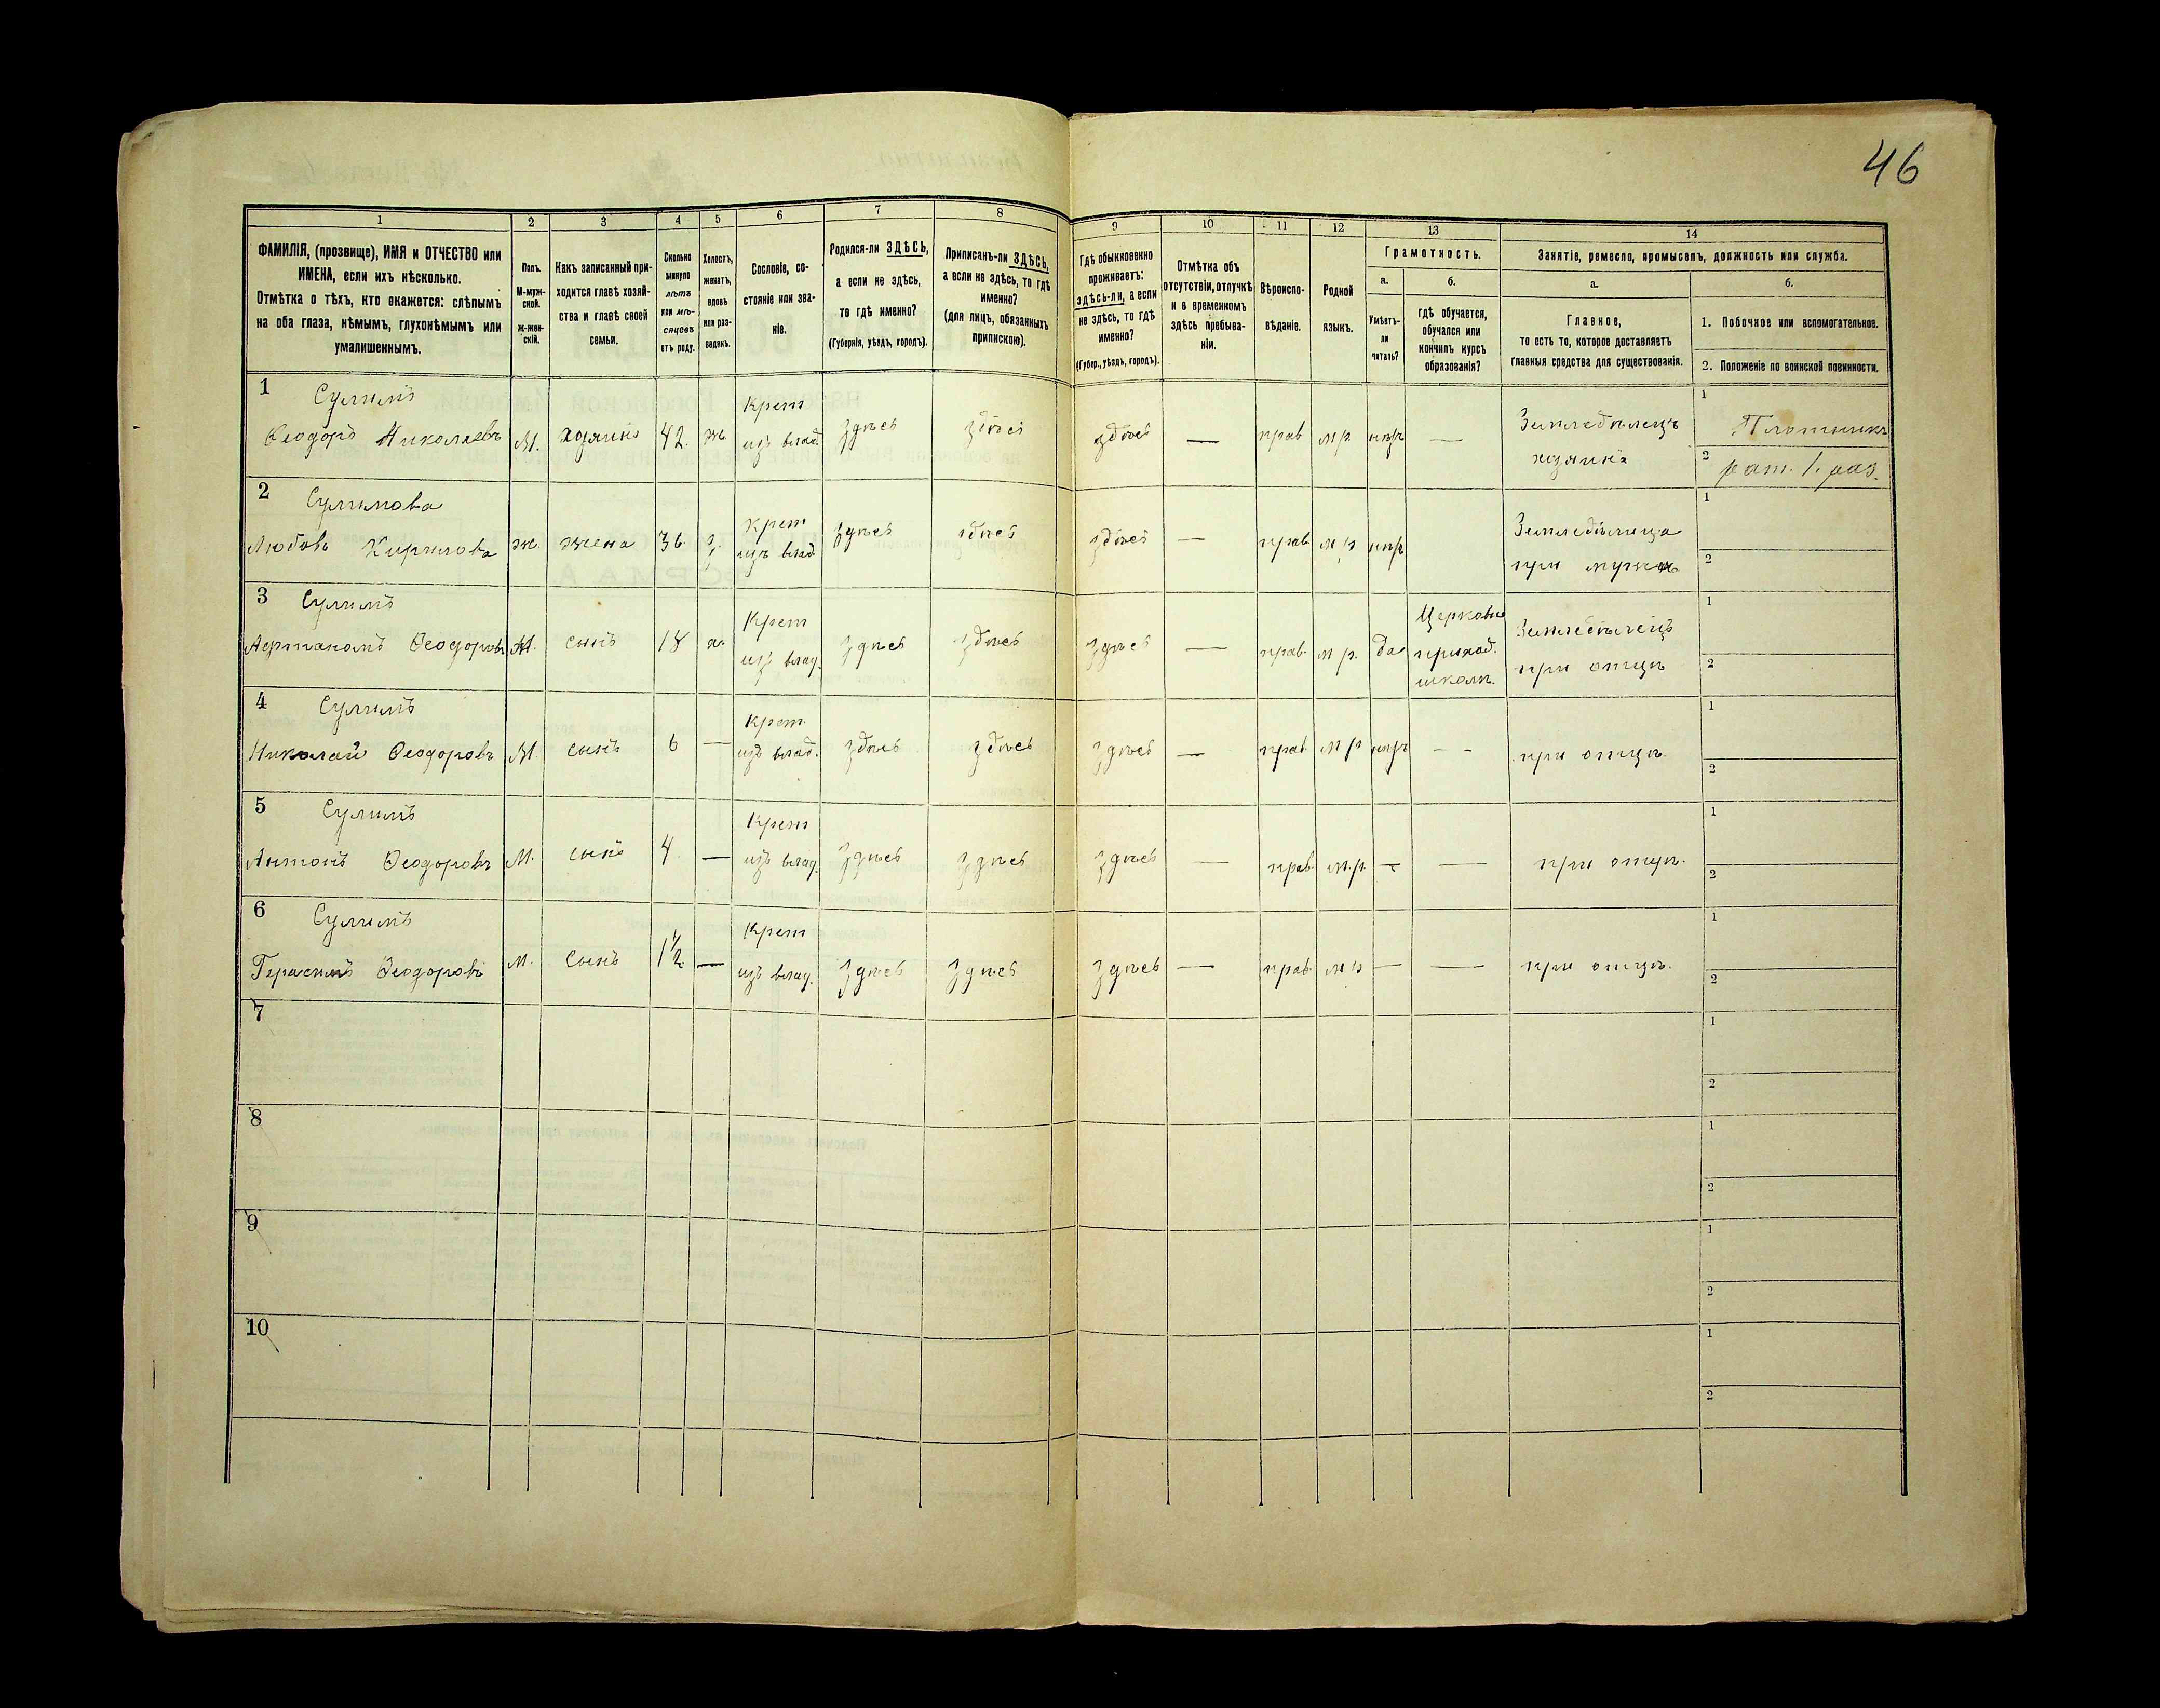 46
1 2 3 4 5 6 7 8 9 10 11 12 13 14
ФАМИЛІЯ, (прозвище), ИМЯ и ОТЧЕСТВО или
ИМЕНА, если ихъ нѣсколько.
Отмѣтка о тѣхъ, кто окажется: слѣпымъ
на оба глаза, нѣмымъ, глухонѣмымъ или
умалишеннымъ.
Полъ.
М-муж-
ской.
ж-жен-
скій.
Какъ записанный при-
ходится главѣ хозяй-
ства и главѣ своей
семьи.
Сколько
минуло
лѣтъ
или мѣ-
сяцевъ
отъ роду.
Холостъ,
женатъ,
вдовъ
или раз-
веденъ.
Сословіе, со-
стояніе или зва-
ніе.
Родился-ли ЗДѢСЬ,
а если не здѣсь,
то гдѣ именно?
(Губернія, уѣздъ, городъ).
Приписанъ-ли ЗДѢСЬ,
а если не здѣсь, то гдѣ
именно?
(для лицъ, обязанныхъ
припискою).
Гдѣ обыкновенно
проживаетъ:
здѣсь-ли, а если
не здѣсь, то гдѣ
именно?
(Губер., уѣздъ, городъ).
Отмѣтка объ
отсутствіи, отлучкѣ
и о временномъ
здѣсь пребыва-
ніи.
Вѣроиспо-
вѣданіе.
Родной
языкъ.
Грамотность.
а.
Умѣетъ-
ли
читать?
б.
гдѣ обучается,
обучался или
кончилъ курсъ
образованія?
Занятіе, ремесло, промыселъ, должность или служба.
а.
Главное,
то есть то, которое доставляетъ
главныя средства для существованія.
б.
1. Побочное или вспомогательное.
2. Положеніе по воинской повинности.
1 Сулимъ
Ѳеодоръ Николаевъ М. хозяинъ 42. ж. Крест из влад. здѣсь здѣсь здѣсь — прав м р. — Земледѣлецъ
хозяинъ
1 Плотникъ
2 рат. 1. раз.
2 Сулимова
Любовь Кирилова ж. жена 36 з. крест изъ влад здѣсь здѣсь здѣсь — прав м р Земледѣлица
при мужѣ
1
2
3 Сулимъ
Ѳеодоровъ М. сынъ 18 х. Крест изъ влад. здѣсь здѣсь здѣсь — прав. м р. да Церковно
приход.
школѣ.
Земледѣлецъ
при отцѣ
1
2
4 Сулимъ
Николай Ѳеодоровъ М. сынъ 6 — крест. изъ влад. здѣсь здѣсь здѣсь — прав м р - - при отцѣ
1
2
5 Сулимъ
Антонъ Ѳеодоровъ М. сынъ 4 — Крест изъ влад. здѣсь здѣсь здѣсь — прав. м.р. - — при отцѣ.
1
2
6 Сулимъ
Герасимъ Ѳеодоровъ М. сынъ 1½ — Крест изъ влад. здѣсь здѣсь здѣсь — прав. м р — — при отцѣ.
1
2
7
1
2
8
1
2
9
1
2
10
1
2